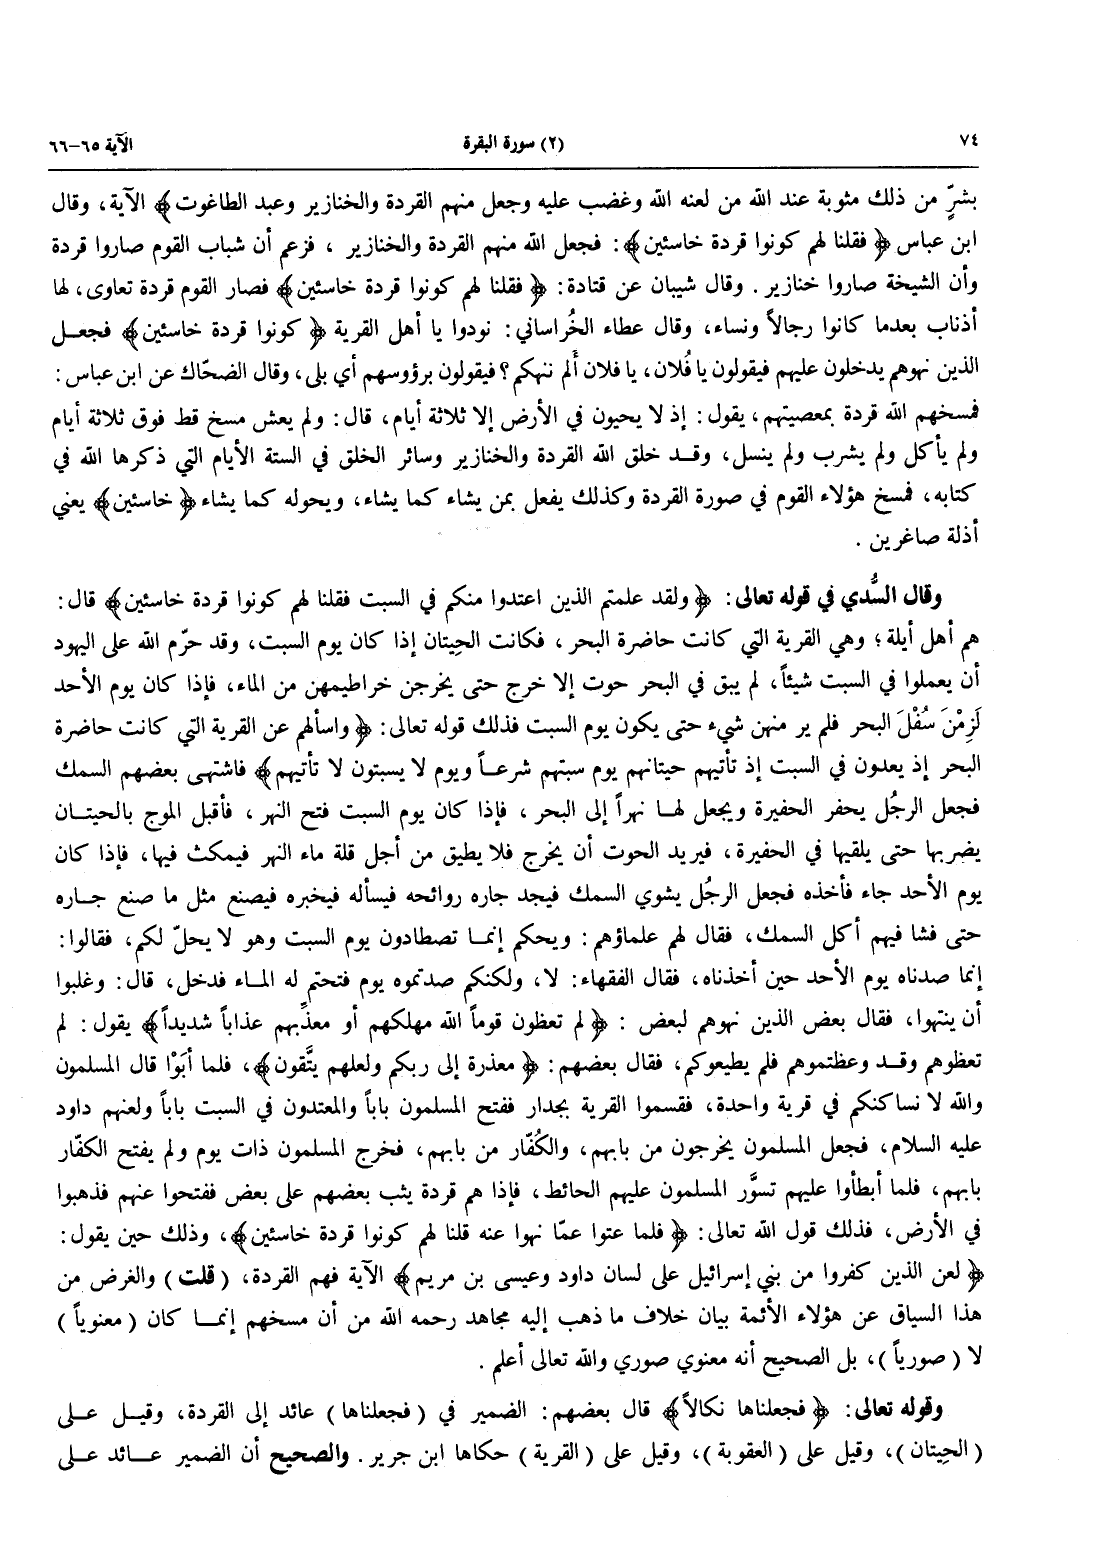 ٧٤ (٢) سورة البقرة الآية ٦٥-٦٦
بشرٍّ من ذلك مثوبة عند الله من لعنه الله وغضب عليه وجعل منهم القردة والخنازير وعبد الطاغوت﴾ الآية، وقال
ابن عباس ﴿ فقلنا لهم كونوا قردة خاسئين﴾: فجعل الله منهم القردة والخنازير ، فزعم أن شباب القوم صاروا قردة
وأن الشيخة صاروا خنازير . وقال شيبان عن قتادة: ﴿ فقلنا لهم كونوا قردة خاسئين﴾ فصار القوم قردة تعاوى، لها
أذناب بعدما كانوا رجالاً ونساء، وقال عطاء الخُراساني: نودوا يا أهل القرية ﴿ كونوا قردة خاسئين﴾ فجعل
الذين نهوهم يدخلون عليهم فيقولون يا فُلان، يا فلان أَلم ننهكم؟ فيقولون برؤوسهم أي بلى، وقال الضحّاك عن ابن عباس:
فمسخهم الله قردة بمعصيتهم، يقول: إذ لا يحيون في الأرض إلا ثلاثة أيام، قال: ولم يعش مسخ قط فوق ثلاثة أيام
ولم يأكل ولم يشرب ولم ينسل، وقد خلق الله القردة والخنازير وسائر الخلق في الستة الأيام التي ذكرها الله في
كتابه، فمسخ هؤلاء القوم في صورة القردة وكذلك يفعل بمن يشاء كما يشاء، ويحوله كما يشاء ﴿ خاسئين﴾ يعني
أذلة صاغرين .
وقال السُّدي في قوله تعالى: ﴿ ولقد علمتم الذين اعتدوا منكم في السبت فقلنا لهم كونوا قردة خاسئين﴾ قال:
هم أهل أيلة؛ وهي القرية التي كانت حاضرة البحر ، فكانت الحِيتان إذا كان يوم السبت، وقد حرّم الله على اليهود
أن يعملوا في السبت شيئاً، لم يبق في البحر حوت إلا خرج حتى يخرجن خراطيمهن من الماء، فإذا كان يوم الأحد
لَزِمْنَ سُفْلَ البحر فلم ير منهن شيء حتى يكون يوم السبت فذلك قوله تعالى: ﴿ واسألهم عن القرية التي كانت حاضرة
البحر إذ يعدون في السبت إذ تأتيهم حيتانهم يوم سبتهم شرعاً ويوم لا يسبتون لا تأتيهم﴾ فاشتهى بعضهم السمك
فجعل الرجُل يحفر الحفيرة ويجعل لها نهراً إلى البحر ، فإذا كان يوم السبت فتح النهر ، فأقبل الموج بالحيتان
يضربها حتى يلقيها في الحفيرة، فيريد الحوت أن يخرج فلا يطيق من أجل قلة ماء النهر فيمكث فيها، فإذا كان
يوم الأحد جاء فأخذه فجعل الرجُل يشوي السمك فيجد جاره روائحه فيسأله فيخبره فيصنع مثل ما صنع جاره
حتى فشا فيهم أكل السمك، فقال لهم علماؤهم: ويحكم إنما تصطادون يوم السبت وهو لا يحلّ لكم، فقالوا:
إنما صدناه يوم الأحد حين أخذناه، فقال الفقهاء: لا، ولكنكم صدتموه يوم فتحتم له الماء فدخل، قال: وغلبوا
أن ينتهوا، فقال بعض الذين نهوهم لبعض : ﴿ لم تعظون قوماً الله مهلكهم أو معذِّبهم عذاباً شديداً﴾ يقول: لم
تعظوهم وقد وعظتموهم فلم يطيعوكم، فقال بعضهم: ﴿ معذرة إلى ربكم ولعلهم يتَّقون﴾، فلما أبَوْا قال المسلمون
والله لا نساكنكم في قرية واحدة، فقسموا القرية بجدار ففتح المسلمون باباً والمعتدون في السبت باباً ولعنهم داود
عليه السلام، فجعل المسلمون يخرجون من بابهم، والكُفّار من بابهم، فخرج المسلمون ذات يوم ولم يفتح الكفّار
بابهم، فلما أبطأوا عليهم تسوَّر المسلمون عليهم الحائط، فإذا هم قردة يثب بعضهم على بعض ففتحوا عنهم فذهبوا
في الأرض، فذلك قول الله تعالى: ﴿ فلما عتوا عمّا نهوا عنه قلنا لهم كونوا قردة خاسئين﴾، وذلك حين يقول:
﴿ لعن الذين كفروا من بني إسرائيل على لسان داود وعيسى بن مريم﴾ الآية فهم القردة، (قلت) والغرض من
هذا السياق عن هؤلاء الأئمة بيان خلاف ما ذهب إليه مجاهد رحمه الله من أن مسخهم إنما كان (معنوياً)
لا (صورياً)، بل الصحيح أنه معنوي صوري والله تعالى أعلم .
وقوله تعالى: ﴿ فجعلناها نكالاً﴾ قال بعضهم: الضمير في (فجعلناها) عائد إلى القردة، وقيل على
(الحِيتان)، وقيل على (العقوبة)، وقيل على (القرية) حكاها ابن جرير . والصحيح أن الضمير عائد على